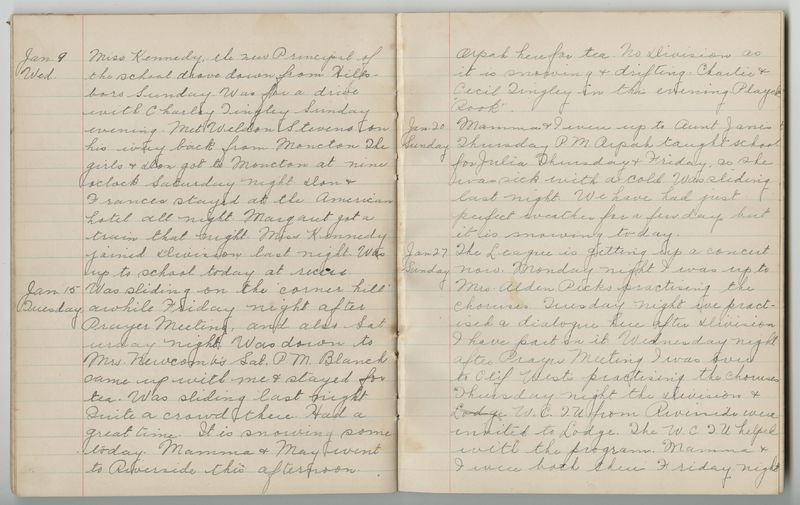 Jan 9 Miss Kennedy, the new Principal of
Wed. the school drove down from Hills-
boro Sunday. Was for a drive
with Charley Tingley Sunday
evening. Met Weldon Stevens on
his way back from Moncton. The
girls & Don got to Moncton at nine
oclock Saturday night. Don &
Frances stayed at the American
hotel all night Margaret got a
train that night. Miss Kennedy
joined Division last night. Was
up to school today at recess
Jan 15 Was sliding on the "corner hill"
Tuesday awhile Friday night after
Prayer Meeting, and also Sat
urday night. Was down to
Mrs. Newcomb's Sat. P.M. Blanch
came up with me & stayed for
tea. Was sliding last night
Quite a crowd there. Had a
great time. It is snowing some
today. Mamma & May went
to Riverside this afternoon.
Orpah here for tea. No Division as
it is snowing & drifting. Charlie &
Cecil Tingley in this evening Played
"Rook".
Jan 20 Mamma & I were up to Aunt Janie's
Sunday Thursday P.M. Orpah taught school
for Julia Thursday & Friday, as she
was sick with a cold. Was sliding
last night. We have had just
perfect weather for a few day but
it is snowing today.
Jan 27 The League is getting up a concert
Sunday now. Monday night I was up to
Mrs. Alden Pecks practising the
choruses. Tuesday night we pract-
ised a dialogue here after Division
I have part in it. Wednesday night
after Prayer Meeting I was over
to Clif Wests practising the choruses
Thursday night the Division &
Lodge W.C.T.U from Riverside were
invited to Lodge. The W.C.T.U helped
with the program. Mamma &
I were both there Friday night